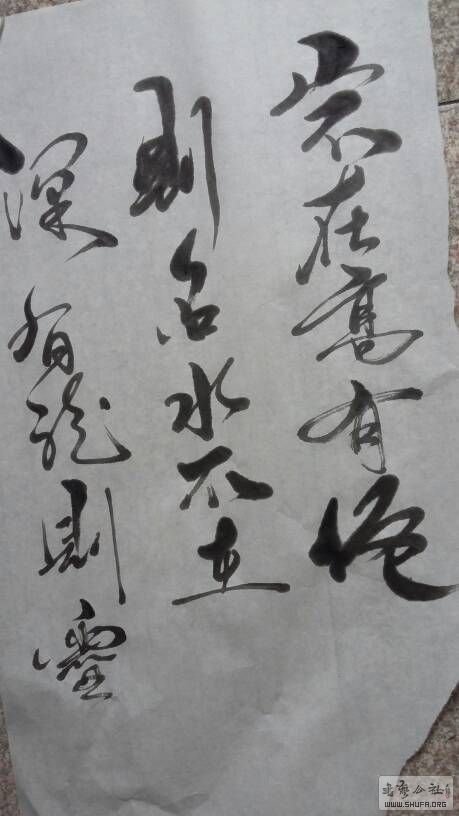 山不在高有仙
則名水不在
深有龍則靈
書藝公社
WWW.SHUFA.ORG